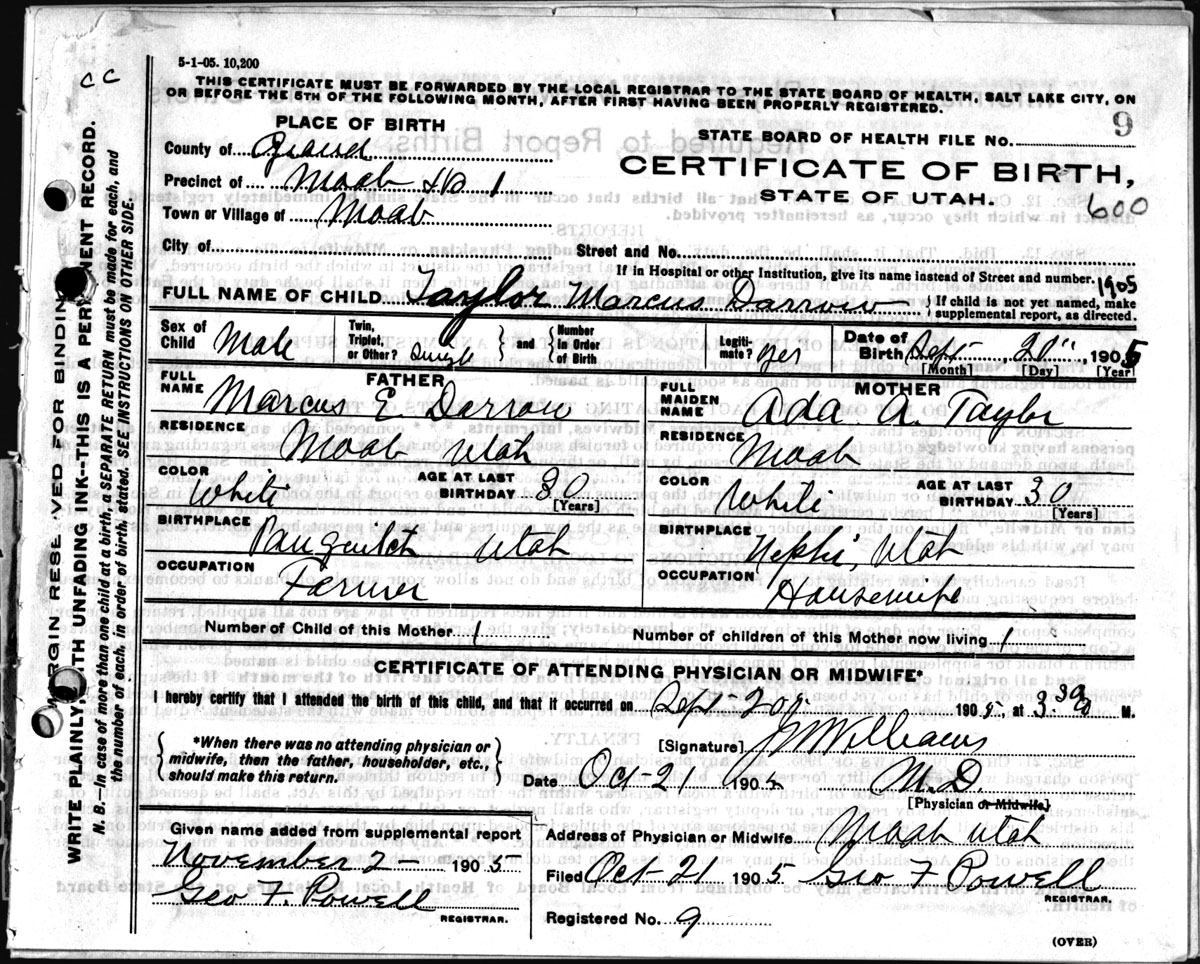 5-1-05. 10,200
CC
THIS CERTIFICATE MUST BE FORWARDED BY THE LOCAL REGISTRAR TO THE STATE BOARD OF HEALTH, SALT LAKE CITY, ON
OR BEFORE THE 5TH OF THE FOLLOWING MONTH, AFTER FIRST HAVING BEEN PROPERLY REGISTERED.
MARGIN RESERVED FOR BINDING
WRITE PLAINLY, WITH UNFADING INK--THIS IS A PERMANENT RECORD.
N. B.--In case of more than one child at a birth, a SEPARATE RETURN must be made for each, and
the number of each, in order of birth, stated. SEE INSTRUCTIONS ON OTHER SIDE.
PLACE OF BIRTH
County of Grand
Precinct of Moab 1
Town or Village of Moab
City of
STATE BOARD OF HEALTH FILE NO. 9
CERTIFICATE OF BIRTH,
STATE OF UTAH.
600
Street and No.
If in Hospital or other Institution, give its name instead of Street and number.
1905
FULL NAME OF CHILD Taylor Marcus Darrow { If child is not yet named, make
supplemental report, as directed.
Sex of Child Male Twin, Triplet, or Other? single } and { Number in Order of Birth Legitimate? yes Date of Birth Sept 20" 1905
[Month] [Day] [Year]
FATHER
FULL NAME Marcus E. Darrow
RESIDENCE Moab Utah
COLOR White AGE AT LAST BIRTHDAY 30 [Years]
BIRTHPLACE Panguitch Utah
OCCUPATION Farmer
MOTHER
FULL MAIDEN NAME Ada A. Taylor
RESIDENCE Moab
COLOR White AGE AT LAST BIRTHDAY 30 [Years]
BIRTHPLACE Nephi, Utah
OCCUPATION Housewife
Number of Child of this Mother 1 Number of children of this Mother now living 1
CERTIFICATE OF ATTENDING PHYSICIAN OR MIDWIFE*
I hereby certify that I attended the birth of this child, and that it occurred on Sept-20th 1905, at 3.30 M.
{ *When there was no attending physician or
midwife, then the father, householder, etc.,
should make this return. }
[Signature] J Williams
Date Oct-21 1905 M.D.
[Physician or Midwife]
Given name added from supplemental report
November 2- 1905
Geo F. Powell
REGISTRAR.
Address of Physician or Midwife Moab Utah
Filed Oct-21 1905 Geo F Powell
REGISTRAR.
Registered No. 9
(OVER)